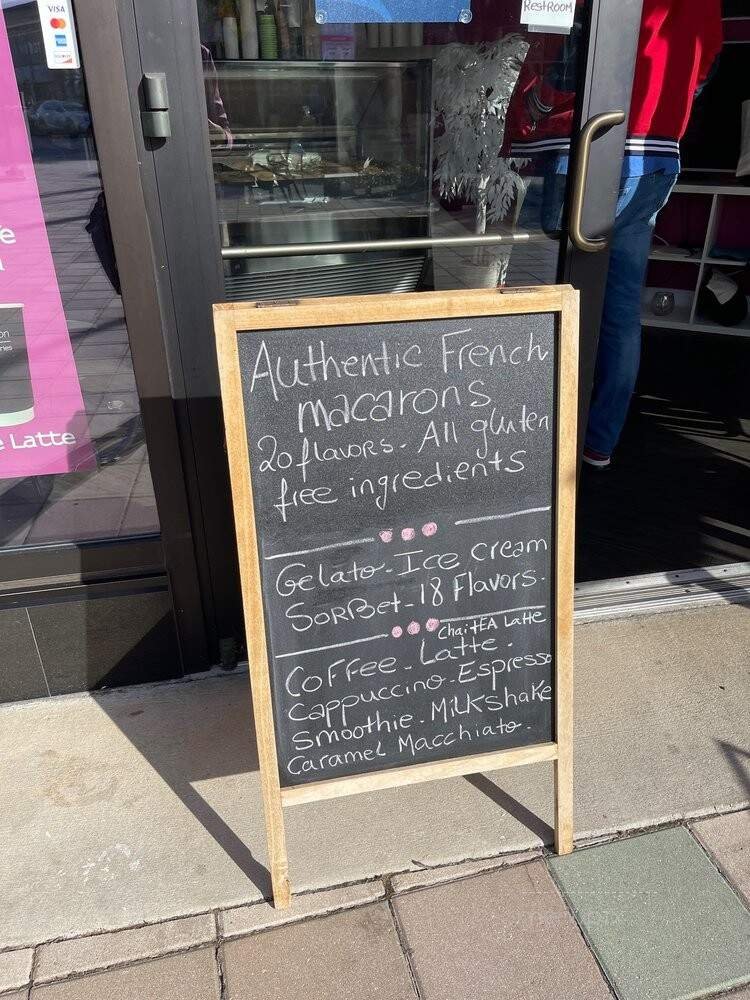 VISA
RestRoom
e Latte
Authentic French
macarons
20 flavors - All gluten
free ingredients
Gelato - Ice cream
SorBet - 18 Flavors.
ChaitEA Latte
CoFFee - Latte -
Cappuccino - Espresso
Smoothie - MilKshaKe
Caramel Macchiato.